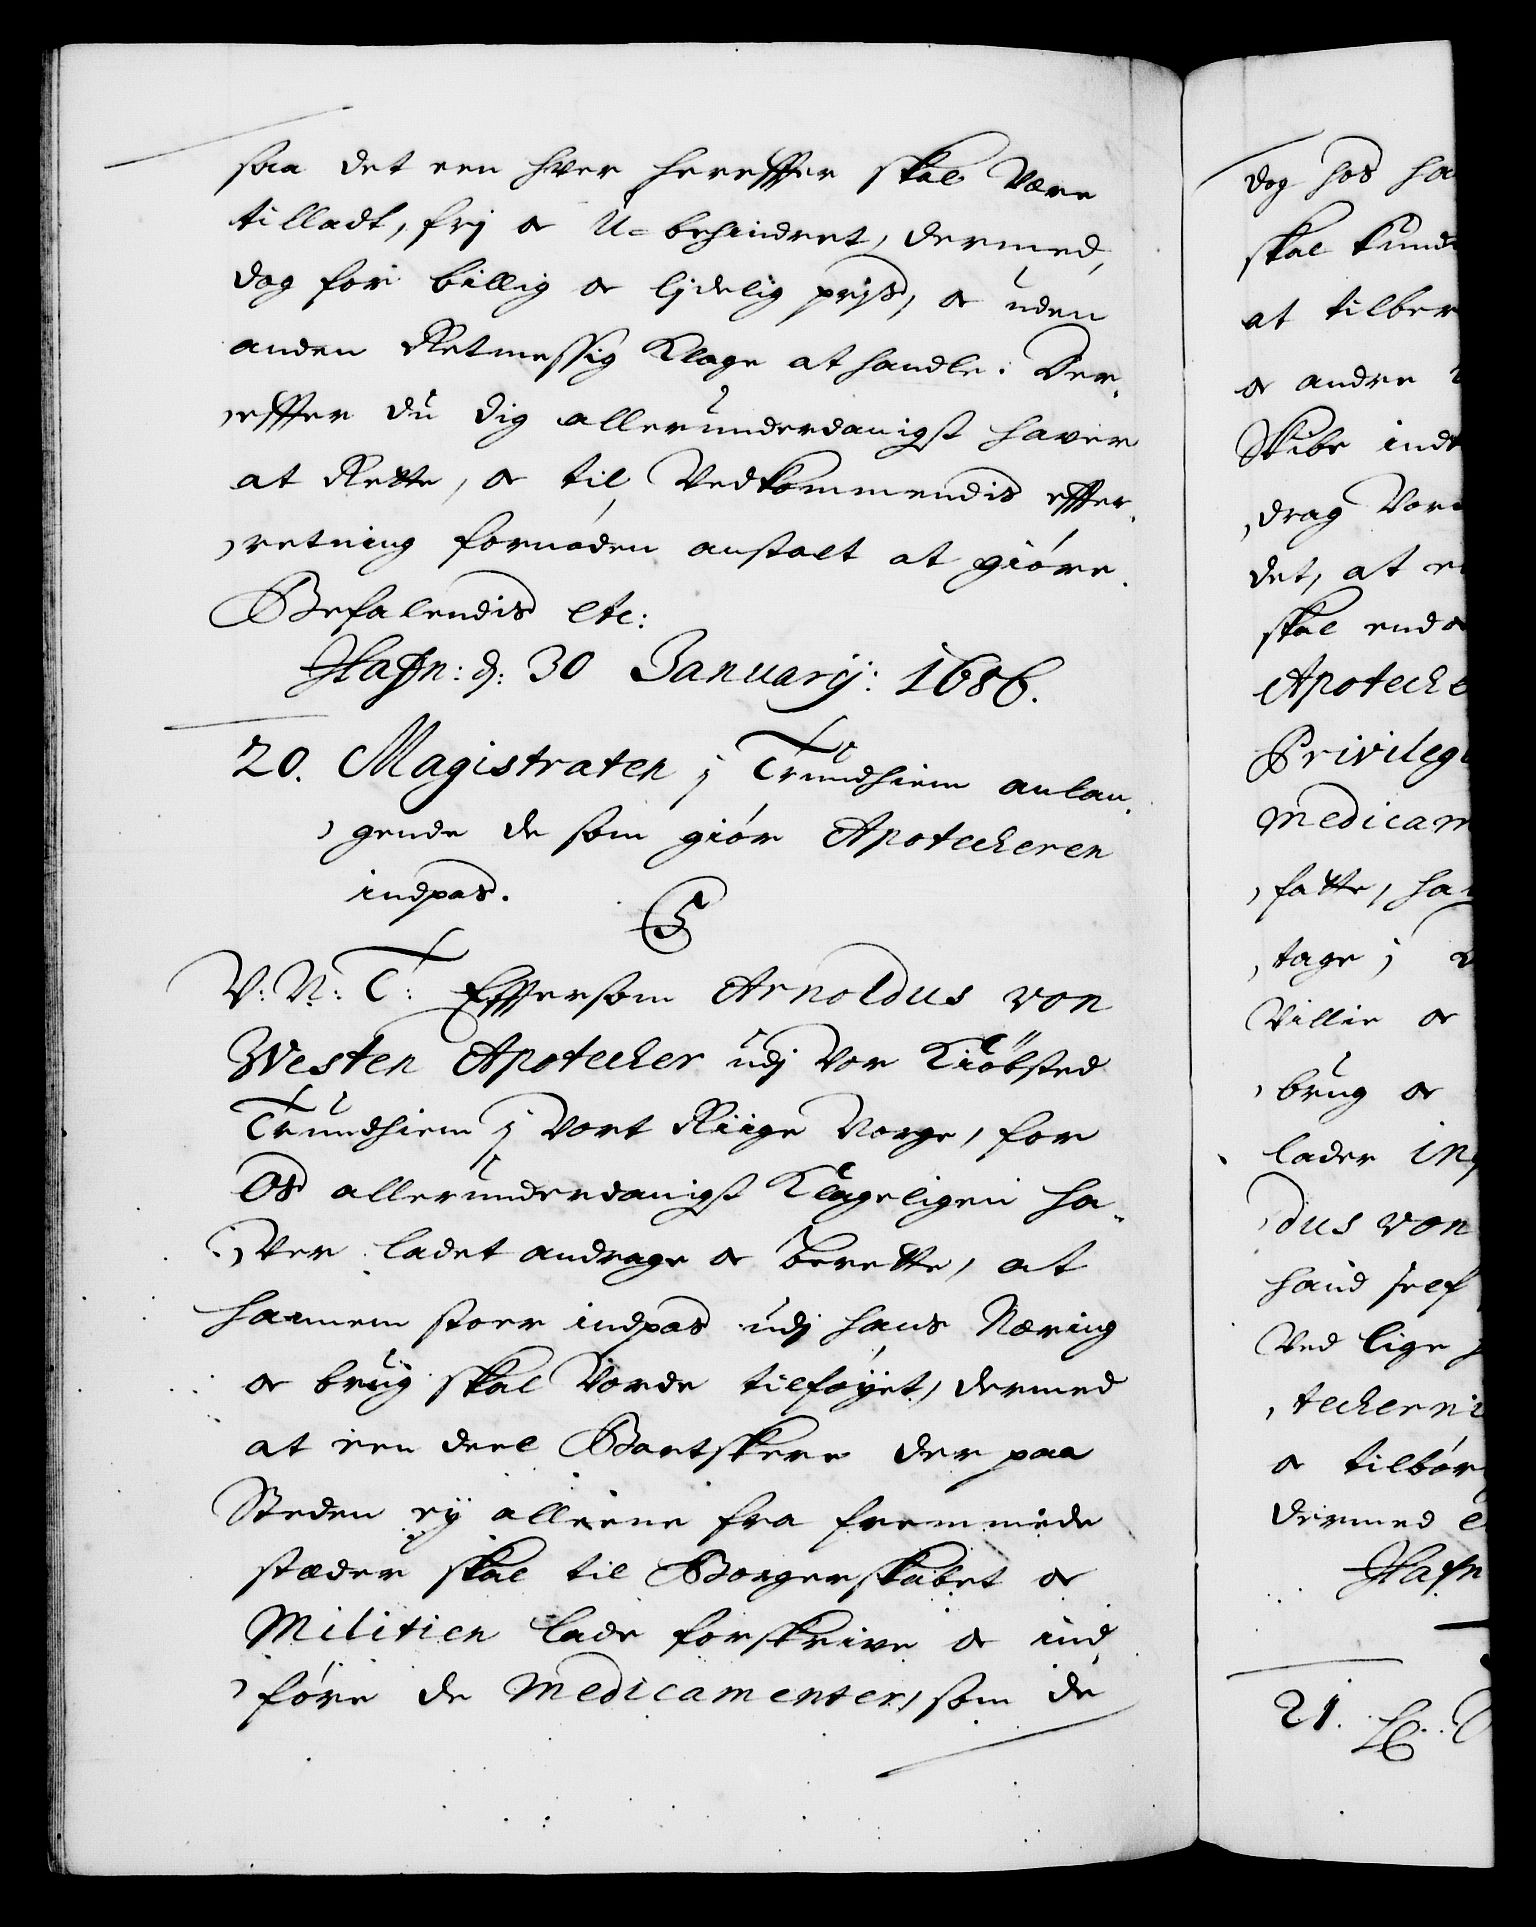 saa det een hver hereffter skal Være
tilladt, frj oc U-behindret, dermed,
dog for billig oc ljdelig prjs, oc uden
anden Retmessig Klage at handle. Der-
effter du dig allerunderdanigst haver
at Rette, oc til Vedkommendis effter-
retning fornøden anstalt at giöre.
Befalendis etc:
Hafn: d: 30 Januarij: 1686.
20. Magistraten j Trundhiem anlan-
gende de som giör Apoteckeren
indpas.
C5
V: N: T: Efftersom Arnoldus von
Westen Apotecker udj Vor Kiöbsted
Trundhiem j Vort Riige Norge, for
Os allerunderdanigst Klageligen ha-
ver ladet andrage oc berette, at
hannem stoer indpas udj hans Næring
oc brug skal Vorde tilföyet, dermed
at een deel Bartskere der paa
Steden ey alleene fra fremmede
stæder skal til Borgerskabet oc
Militien lade forskrive oc ind
före de Medicamenter, som de
dog hos ha
skal kund
at tilber
oc andre
Skibe ind
drag Vor
det, at
skal end
Apotecke
Privileg
medicam
fatte, ha
tage j
Villie oc
brug oc
lader in
dus von
haud self
Ved lige
teckerni
oc tilbör
dermed
Hafn
21.